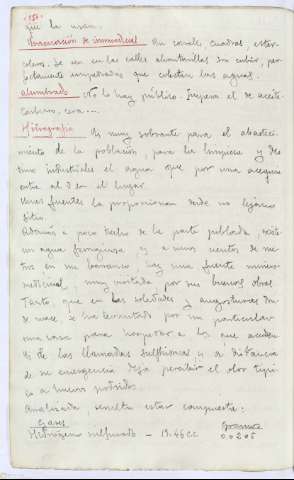 -152-
que la usan.
Evacuación de inmundicias En corrales, cuadras, ester-
coleros. Se ven en las calles alcantarillas sin cubrir, per-
fectamente empedradas que colectan las aguas.
Alumbrado No lo hay público. Impera el de aceite
carburo, cera....
Hidrografía Es muy sobrante para el abasteci-
miento de la población, para la limpieza y de
mas industriales el agua que por una acequia
entra al S. en el lugar.
Unas fuentes la proporcionan desde no lejano
sitio.
Además a poco trecho de la parte poblada, existe
un agua ferruginosa y a unos cientos de me-
tros en un barranco, hay una fuente minero
medicinal, muy visitada por sus buenas obras.
Tanto, que en las soledades y angosturas don
de nace, se ha levantado por un particular
una casa para hospedar a los que acuden
Es de las llamadas sulfhídricas y a distancia
de su emergencia deja percibir el olor típi-
co a huevos podridos.
Analizada resulta estar compuesta:
Gases
Hidrógeno sulfurado — 19.46 CC
0,0206